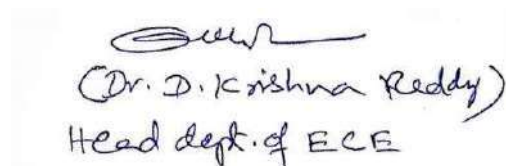 (Dr. D. Krishna Reddy)
Head dept. of ECE